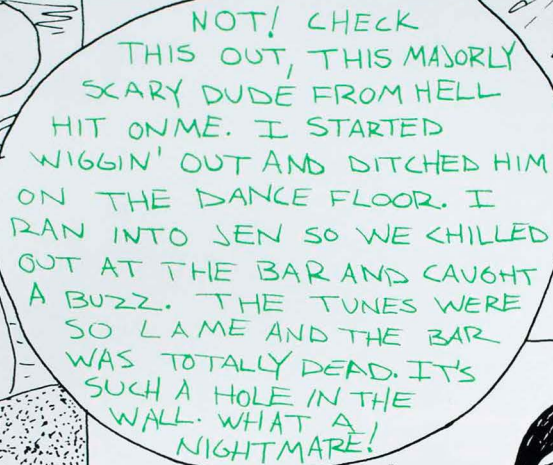 NOT! CHECK
THIS OUT, THIS MAJORLY
SCARY DUDE FROM HELL
HIT ON ME. I STARTED
WIGGIN' OUT AND DITCHED HIM
ON THE DANCE FLOOR. I
RAN INTO JEN SO WE CHILLED
OUT AT THE BAR AND CAUGHT
A BUZZ. THE TUNES WERE
SO LAME AND THE BAR
WAS TOTALLY DEAD. IT'S
SUCH A HOLE IN THE
WALL. WHAT A
NIGHTMARE!